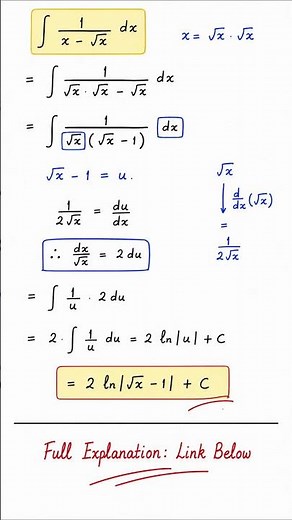 ∫ 1/(x - √x) dx    x = √x · √x
= ∫ 1/(√x · √x - √x) dx
= ∫ 1/(√x (√x - 1)) dx
√x - 1 = u.    √x
1/(2√x) = du/dx    ↓ d/dx (√x)
=
∴ dx/√x = 2 du    1/(2√x)
= ∫ 1/u · 2 du
= 2 · ∫ 1/u du = 2 ln|u| + C
= 2 ln|√x - 1| + C
Full Explanation: Link Below